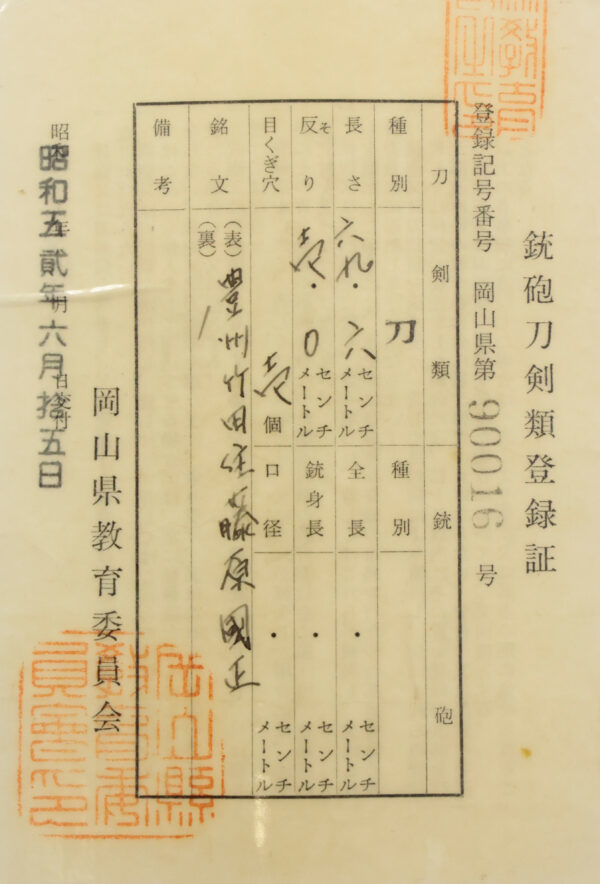 銃砲刀剣類登録証
登録記号番号 岡山県第 90016 号
刀剣類
種別 刀
長さ 六九.六 センチメートル
反り そ 壱.0 センチメートル
目くぎ穴 壱 個
銘文 (表) 豊州竹田住藤原國正
(裏)
備考
銃砲
種別
全長 . センチメートル
銃身長 . センチメートル
口径 . センチメートル
昭和五貳年六月拾五日
岡山県教育委員会